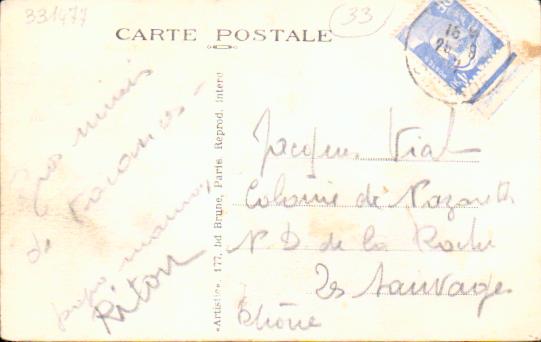 331477
33
CARTE POSTALE
de vacances
papa maman
Riton
«Artistic» 177, bd Brune, Paris. Reprod. Interd
Jacques Vial
Colonie de Nazareth
N D de la Roche
Les Sauvages
Rhône